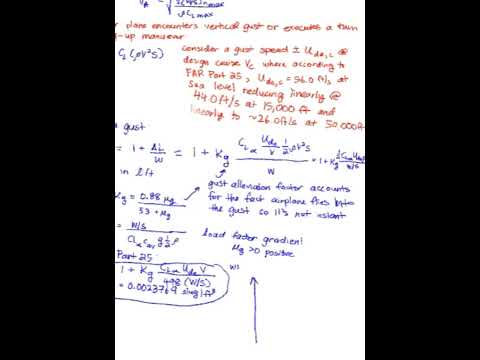 VA = √ 2(W/S) nmax
ρ CL max
r plane encounters vertical gust or executes a turn
-up maneuver
CL (½ρV²S)
consider a gust speed ± Ude,c @
design cruise Vc where according to
FAR Part 25, Ude,c = 56.0 ft/s at
sea level reducing linearly @
44.0 ft/s at 15,000 ft and
linearly to ~26.0 ft/s at 50,000 ft
gust
= 1 + ΔL/W = 1 + Kg CLα Ude/V ½ρV²S / W = 1 + Kg ½CLα Ude / W/S
in lift
gust alleviation factor accounts
for the fact airplane flies into
the gust so it's not instant
Kg = 0.88 μg / 5.3 + μg
= W/S / CLα cav g ½ ρ
load factor gradient
μg > 0 positive
Part 25:
1 + Kg CLα Ude V / 498 (W/S)
= 0.0023769 slug/ft³